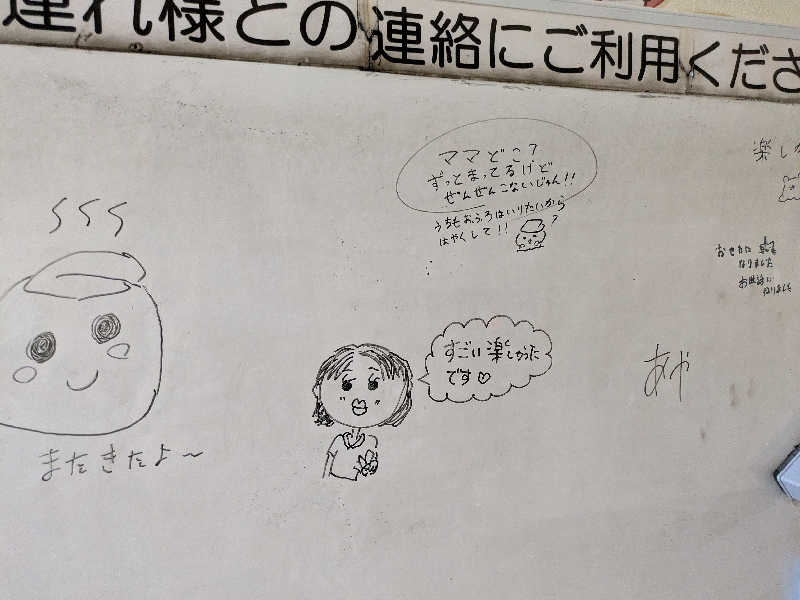 連れ様との連絡にご利用くださ
ママどこ?
ずっとまってるけど
ぜんぜんこないじゃん!!
うちもおふろはいりたいから
はやくして!!
楽し
おせわに
なりました
お世話に
なりました
すごい楽しかった
です♡
あや
またきたよ〜